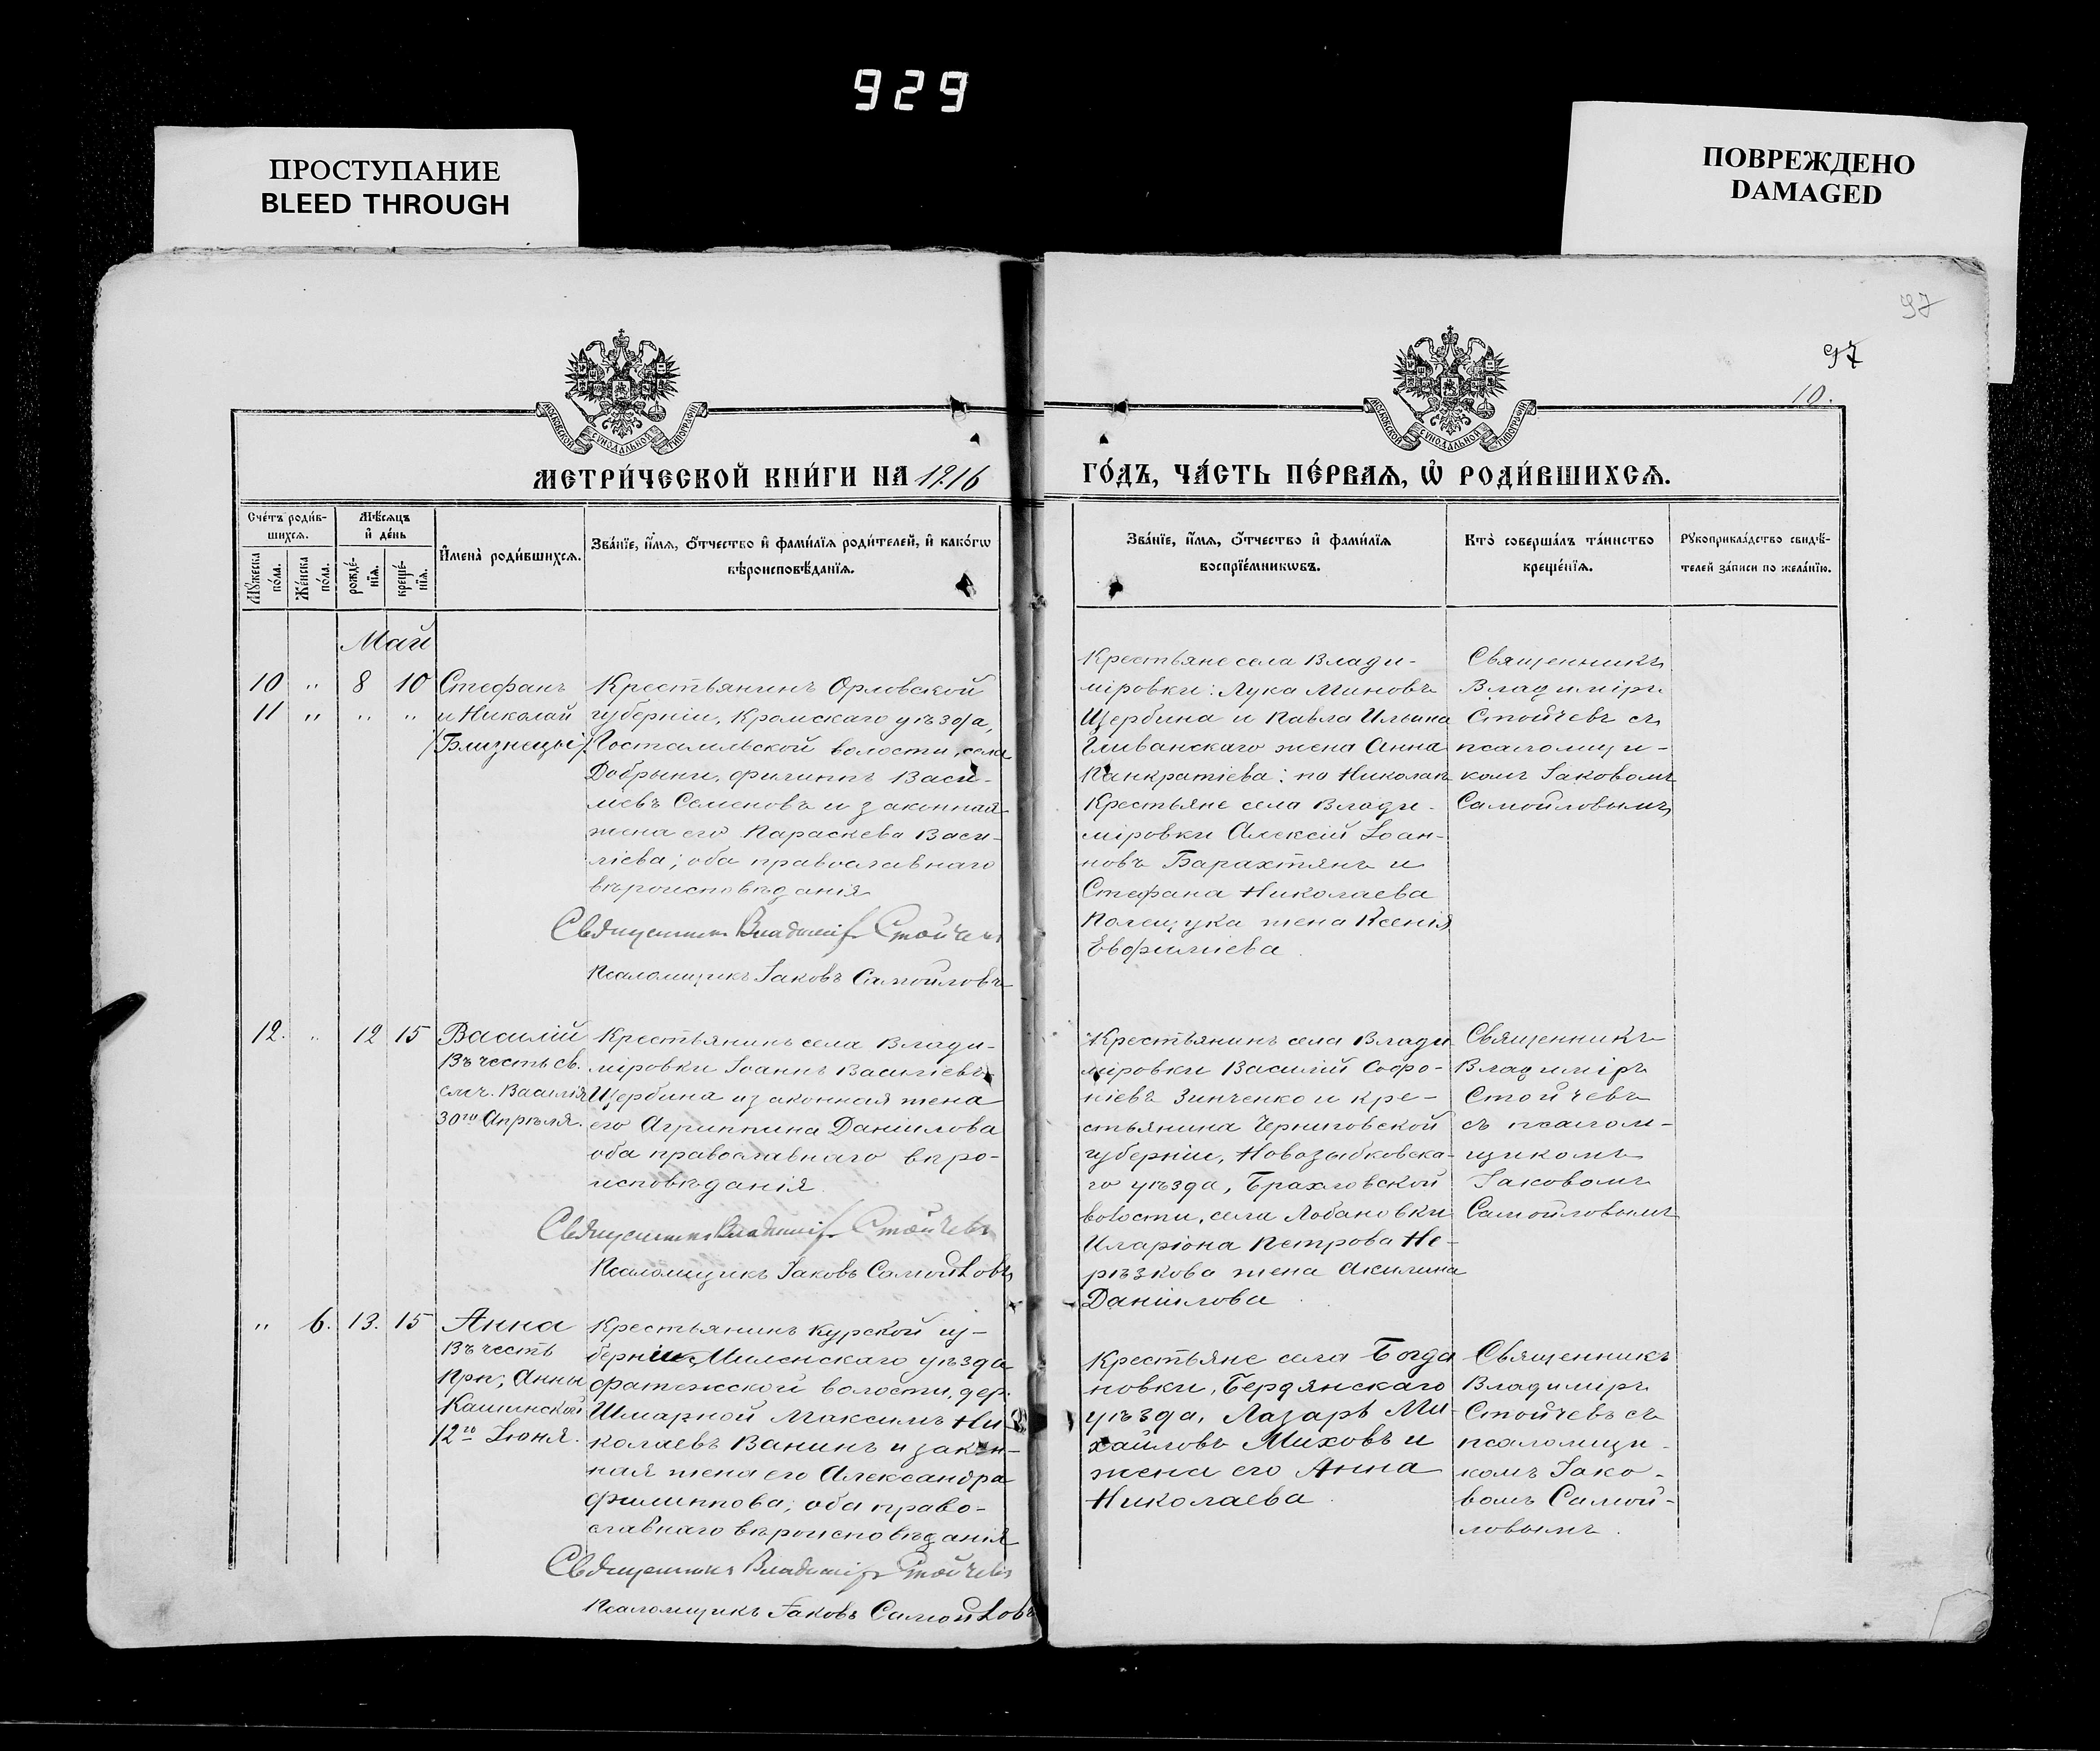 929
ПРОСТУПАНИЕ
BLEED THROUGH
ПОВРЕЖДЕНО
DAMAGED
97
97
10.
МОСКОВСКОЙ СѴНОДАЛЬНОЙ ТИПОГРАФІИ
МОСКОВСКОЙ СѴНОДАЛЬНОЙ ТИПОГРАФІИ
МЕТРИ́ЧЕСКОЙ КНИ́ГИ НА 1916
ГО́ДЪ, ЧА́СТЬ ПЕ́РВАЯ, Ѡ РОДИ́ВШИХСЯ.
Сче́тъ роди́в-
шихся.
Мѣ́сяцъ
и҆ де́нь
Мꙋ́жеска по́ла.
Же́нска по́ла.
рожде́-нїя.
креще́-нїя.
И҆мена̀ роди́вшихся.
Зва́нїе, и҆́мя, ѻ҆́тчество и҆ фами́лїя роди́телей, и҆ како́гѡ
вѣроисповѣ́данїя.
Зва́нїе, и҆́мя, ѻ҆́тчество и҆ фами́лїя
воспрїе́мникѡвъ.
Кто̀ соверша́лъ та́инство
креще́нїя.
Рꙋкоприкла́дство свидѣ́-
телей за́писи по жела́нїю.
Май
10 " 8 10 Стефанъ
11 " " " и Николай
/Близнецы/
Крестьянинъ Орловской
губерніи, Кромскаго уѣзда,
Гостомльской волости, села
Добрыни, Филиппъ Васи-
лiевъ Семеновъ и законная
жена его Параскева Васи-
ліева; оба православнаго
вѣроисповѣданія
Священникъ Владиміръ Стойчевъ
Псаломщикъ Іаковъ Самойловъ
Крестьяне села Влади-
міровки: Лука Миновъ
Щербина и Павла Ильина
Гливанскаго жена Анна
Панкратіева: по Николаѣ
Крестьяне села Влади-
міровки Алексій Іоан-
новъ Барахтянъ и
Стефана Николаева
Полещука жена Ксенія
Евфиміева
Священникъ
Владиміръ
Стойчевъ съ
псаломщи-
комъ Іаковомъ
Самойловымъ
12. " 12 15 Василій
Въ честь св.
смч. Василія
30го Апрѣля.
Крестьянинъ села Влади-
міровки Іоаннъ Василіевъ
Щербина и законная жена
его Агриппина Даніилова
оба православнаго вѣро-
исповѣданія
Священникъ Владиміръ Стойчевъ
Псаломщикъ Іаковъ Самойловъ
Крестьянинъ села Влади
міровки Василій Софро-
ніевъ Зинченко и кре-
стьянина Черниговской
губерніи, Новозыбковска-
го уѣзда, Брахловской
волости, села Лобановки
Иларіона Петрова Не-
рѣзкова жена Акилина
Даніилова
Священникъ
Владиміръ
Стойчевъ
съ псалом-
щикомъ
Іаковомъ
Самойловымъ
" 6. 13. 15 Анна
Въ честь
прп; Анны
Кашинской
12го Іюня.
Крестьянинъ Курской гу-
берніи, Миленскаго уѣзда
Фатежской волости, дер.
Шмарной Максимъ Ни-
колаевъ Ванинъ и закон-
ная жена его Александра
Филиппова; оба право-
славнаго вѣроисповѣданія
Священникъ Владиміръ Стойчевъ
Псаломщикъ Іаковъ Самойловъ
Крестьяне села Богда
новки, Бердянскаго
уѣзда, Лазарь Ми-
хайловъ Миховъ и
жена его Анна
Николаева
Священникъ
Владиміръ
Стойчевъ съ
псаломщи-
комъ Іако-
вомъ Самой-
ловымъ